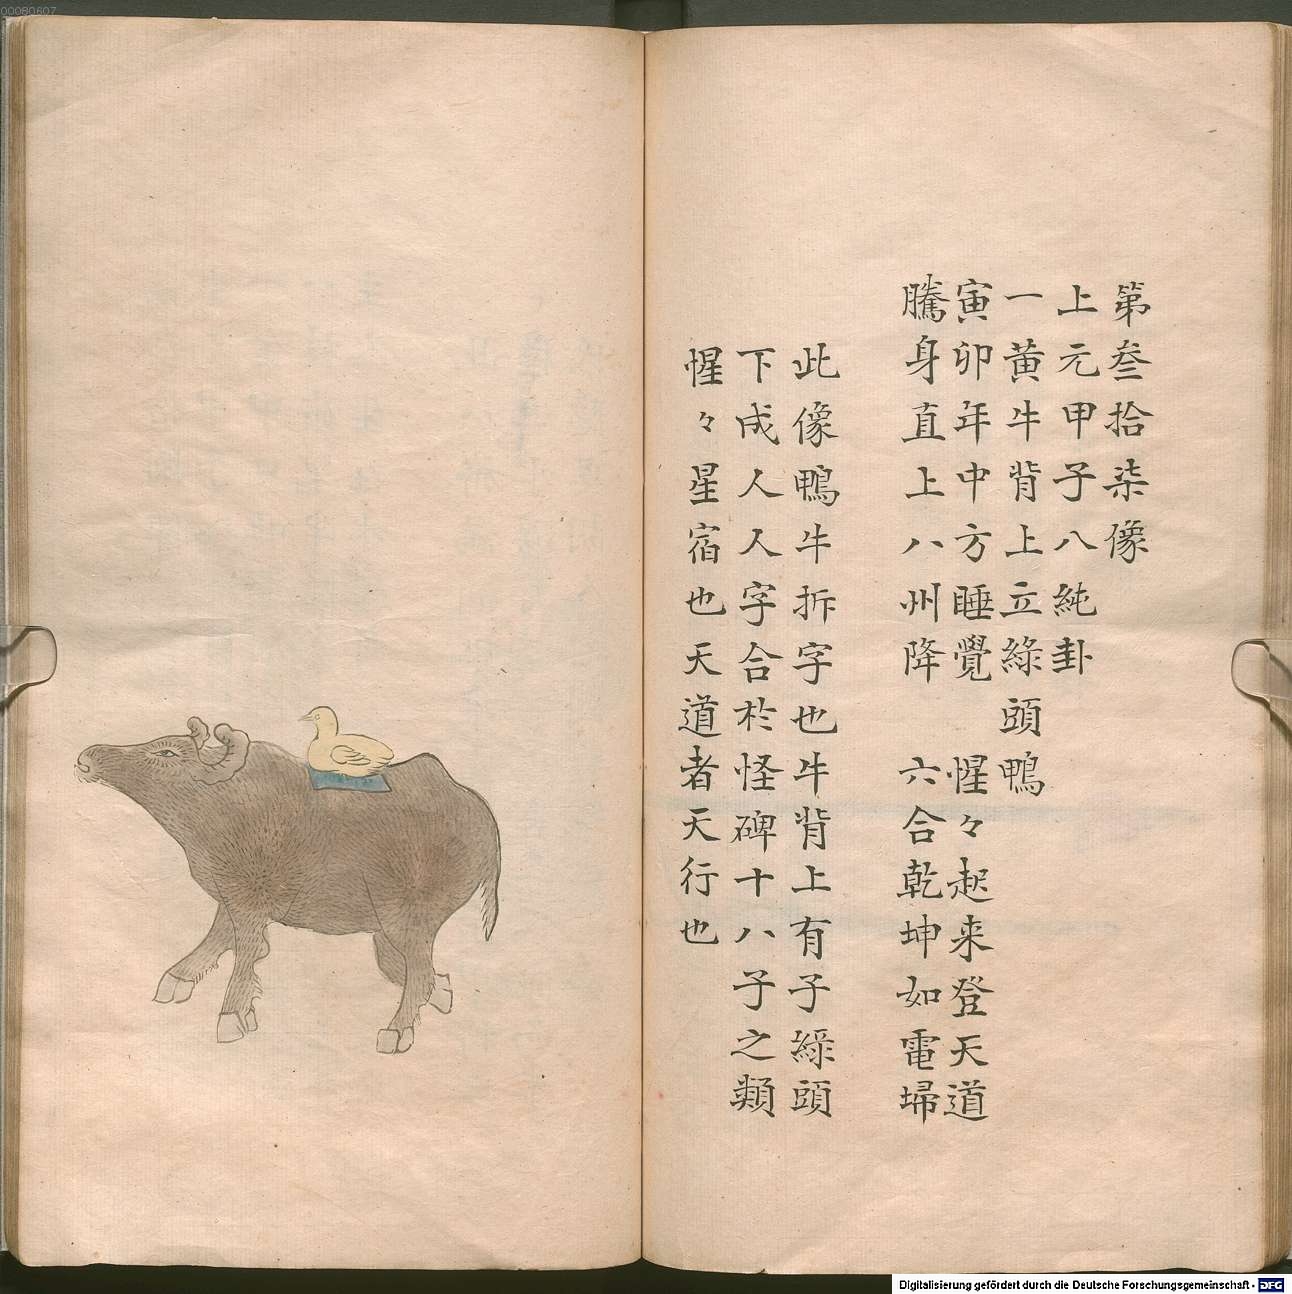 00080607
第叁拾柒像
上元甲子八純卦
一黄牛背上立綠頭鴨
寅卯年中方睡覺 惺々起来登天道
騰身直上八州降 六合乾坤如電埽
此像鴨牛拆字也牛背上有子綠頭
下成人人字合於怪碑十八子之類
惺々星宿也天道者天行也
Digitalisierung gefördert durch die Deutsche Forschungsgemeinschaft - DFG